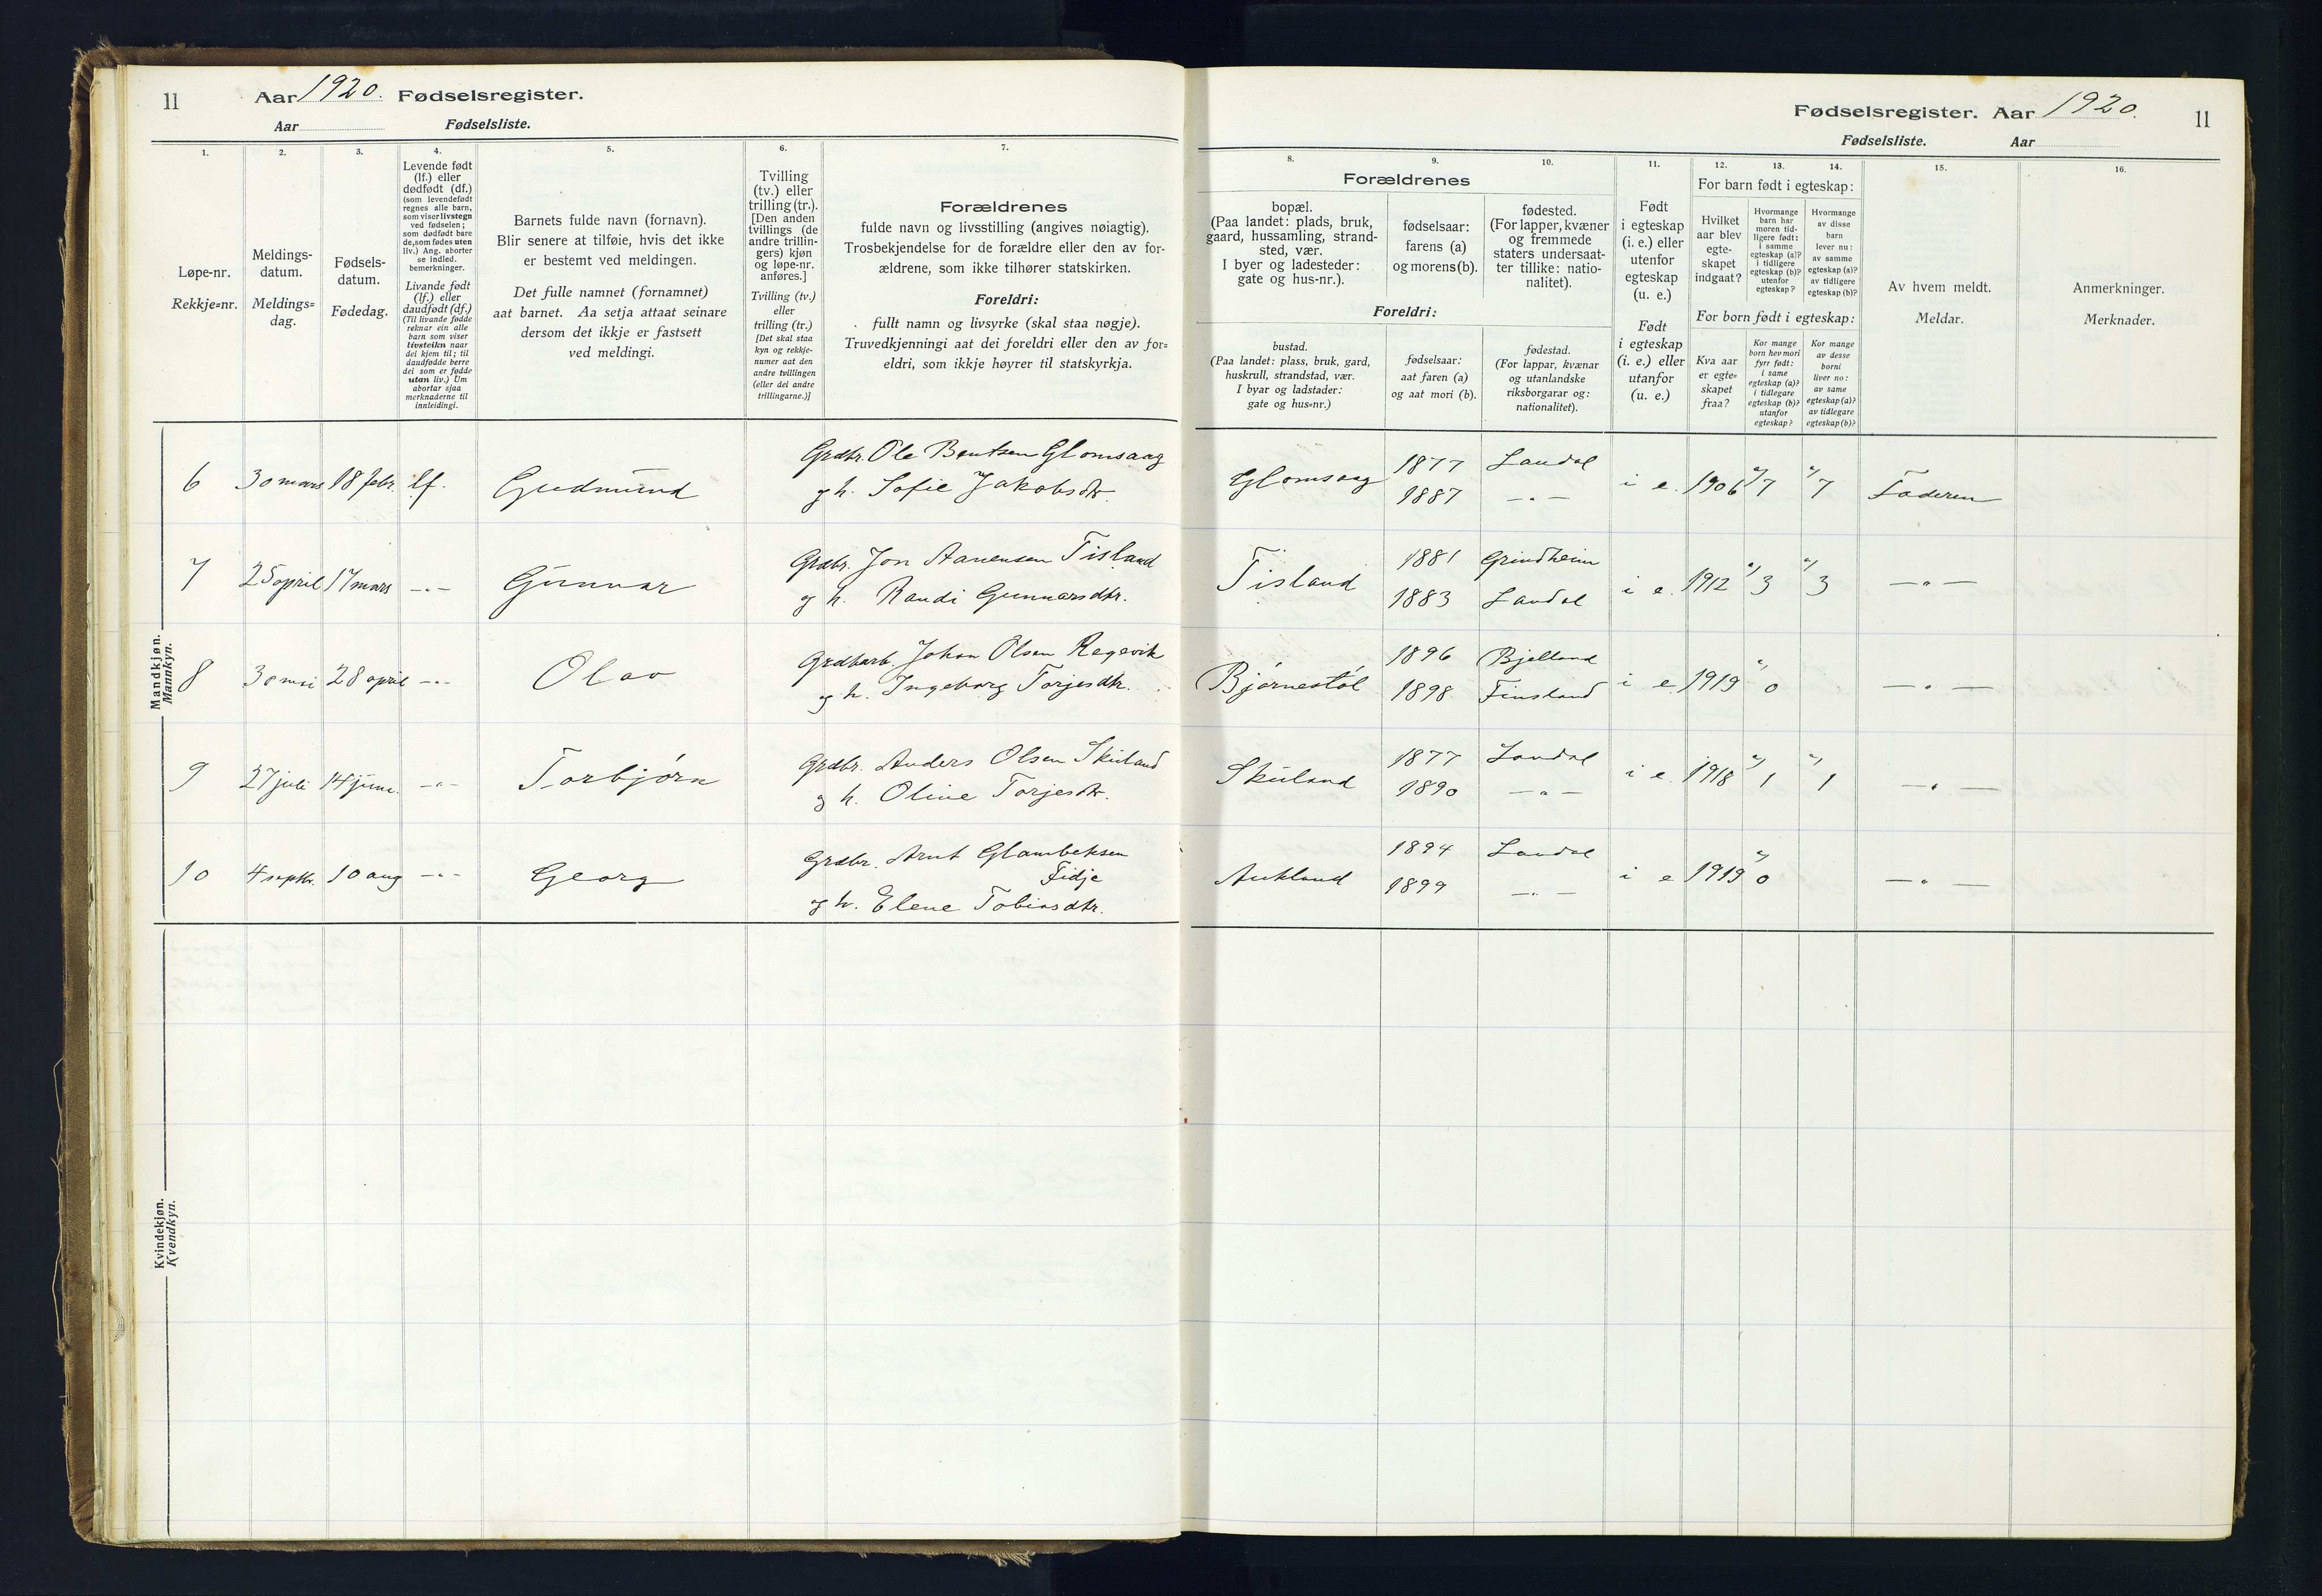 11
Aar 1920. Fødselsregister.
Aar
Fødselsliste.
1.
2.
3.
4.
5.
6.
7.
Løpe-nr.
Rekkje=nr.
Meldings-
datum.
Meldings=
dag.
Fødsels-
datum.
Fødedag.
Levende født
(lf.) eller
dødfødt (df.)
(som levendefødt
regnes alle barn,
som viser livstegn
ved fødselen;
som dødfødt bare
de, som fødes uten
liv.) Ang. aborter
se indled.
bemerkninger.
Livande født
(lf.) eller
daudfødt (df.)
(Til livande fødde
reknar ein alle
barn som viser
livsteikn naar
dei kjem til; til
daudfødde berre
dei som er fødde
utan liv.) Um
abortar sjaa
merknaderne til
innleidingi.
Barnets fulde navn (fornavn).
Blir senere at tilføie, hvis det ikke
er bestemt ved meldingen.
Det fulle namnet (fornamnet)
aat barnet. Aa setja attaat seinare
dersom det ikkje er fastsett
ved meldingi.
Tvilling
(tv.) eller
trilling (tr.).
[Den anden
tvillings (de
andre trillin-
gers) kjøn
og løpe-nr.
anføres.]
Tvilling (tv.)
eller
trilling (tr.)
[Det skal staa
kyn og rekkje-
numer aat den
andre tvillingen
(eller dei andre
trillingarne.)]
Forældrenes
fulde navn og livsstilling (angives nøiagtig).
Trosbekjendelse for de forældre eller den av for-
ældrene, som ikke tilhører statskirken.
Foreldri:
fullt namn og livsyrke (skal staa nøgje).
Truvedkjenningi aat dei foreldri eller den av for=
eldri, som ikkje høyrer til statskyrkja.
Mandkjøn.
Mannkyn.
6 30 mars 18 febr. lf. Gudmund
Grdbr. Ole Bentsen Glomsaag
og h. Sofie Jakobsdtr.
7 25 april 17 mars -"- Gunnar
Grdbr. Jon Aanensen Tisland
og h. Randi Gunnarsdtr.
8 30 mai 28 april -"- Olav
Grdbarb. Johan Olsen Regevik
og h. Ingeborg Torjesdtr.
9 27 juli 14 juni. -"- Torbjørn
Grdbr. Anders Olsen Skuland
og h. Oline Torjesdtr.
10 4 septbr. 10 aug -"- Georg
Grdbr. Arnt Glambeksen
Fidje
og h. Elene Tobiasdtr.
Kvindekjøn.
Kvendkyn.
Fødselsregister. Aar 1920. 11
Fødselsliste.
Aar
8.
9.
10.
11.
12.
13.
14.
15.
16.
Forældrenes
bopæl.
(Paa landet: plads, bruk,
gaard, hussamling, strand-
sted, vær.
I byer og ladesteder:
gate og hus-nr.).
fødselsaar:
farens (a)
og morens (b).
fødested.
(For lapper, kvæner
og fremmede
staters undersaat-
ter tillike: natio-
nalitet).
Foreldri:
bustad.
(Paa landet: plass, bruk, gard,
huskrull, strandstad, vær.
I byar og ladstader:
gate og hus=nr.)
fødselsaar:
aat faren (a)
og aat mori (b).
fødestad.
(For lappar, kvænar
og utanlandske
riksborgarar og:
nationalitet).
Født
i egteskap
(i. e.) eller
utenfor
egteskap
(u. e.)
Født
i egteskap
(i. e.) eller
utanfor
(u. e.)
For barn født i egteskap:
Hvilket
aar blev
egte-
skapet
indgaat?
Hvormange
barn har
moren tid-
ligere født:
i samme
egteskap (a)?
i tidligere
egteskap (b)?
utenfor
egteskap?
Hvormange
av disse
barn
lever nu:
av samme
egteskap (a)?
av tidligere
egteskap (b)?
For born født i egteskap:
Kva aar
er egte=
skapet
fraa?
Kor mange
born hev mori
fyrr født:
i same
egteskap (a)?
i tidlegare
egteskap (b)?
utanfor
egteskap?
Kor mange
av desse
borni
liver no:
av same
egteskap (a)?
av tidlegare
egteskap (b)?
Av hvem meldt.
Meldar.
Anmerkninger.
Merknader.
Glomsaag 1877 Laudal i e. 1906 a/7 a/7 Faderen
1887 -"-
Tisland 1881 Grindheim i e. 1912 a/3 a/3 -"-
1883 Laudal
Bjørnestøl 1896 Bjelland i e 1919 a/0 -"-
1898 Finsland
Skuland 1877 Laudal i e. 1918 a/1 a/1 -"-
1890 -"-
Aukland 1894 Laudal i e 1919 a/0 -"-
1899 -"-